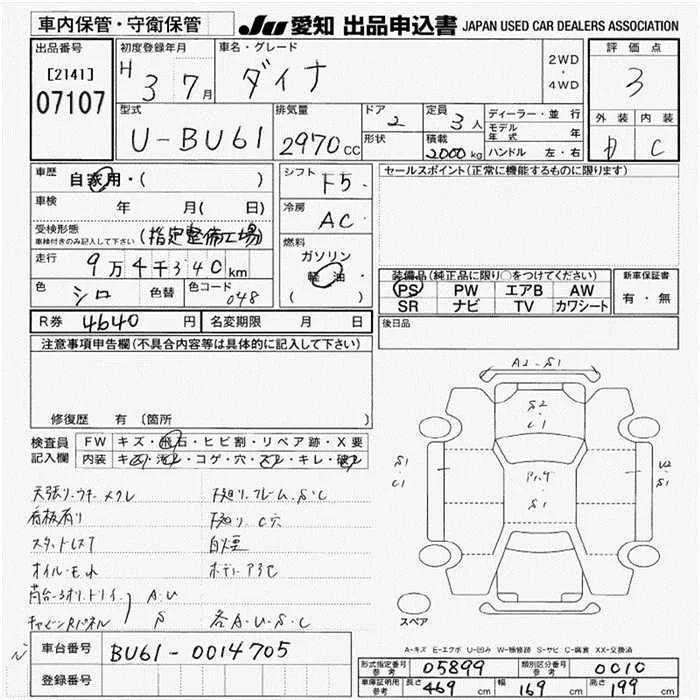 車内保管・守衛保管
JU 愛知 出品申込書 JAPAN USED CAR DEALERS ASSOCIATION
出品番号
[2141]
07107
初度登録年月
H 3 7月
車名・グレード
ダイナ
2WD
・
4WD
評価点
3
型式
U-BU61
排気量
2970cc
ドア
2
形状
定員
3人
積載
2000kg
ディーラー・並行
モデル年式 年
ハンドル 左・右
外装 内装
D C
車歴
自家用・( )
車検
年 月( 日)
受検形態
車検付きのみ記入して下さい
(指定整備工場)
走行
9万4千340km
色
シロ
色替
色コード
048
シフト
F5
冷房
AC
燃料
ガソリン
軽油
( )
セールスポイント(正常に機能するものに限ります)
装備品(純正品に限り○をつけてください)
PS PW エアB AW
SR ナビ TV カワシート
新車保証書
有・無
後日品
R券 4640円 名変期限 月 日
注意事項申告欄(不具合内容等は具体的に記入して下さい)
修復歴 有 〔箇所
検査員
記入欄
FW キズ・飛石・ヒビ割・リペア跡・X要
内装 キズ・汚れ・コゲ・穴・スレ・キレ・破れ
天張り
下廻り、フレーム、S、C
看板有り
下廻り C穴
スタットレス7
白煙
オイル・モレ
A・U
S
各A・U・S・C
A2・S1
S2
C1
S1
C1
S1
U2
S1
スペア
A-キズ E-エクボ U-凹み W-補修跡 S-サビ C-腐食 XX-交換済
車台番号
BU61-0014705
登録番号
形式指定番号
参考
05899
類別区分番号
参考
0010
車庫証明用
参考
長さ 469cm 幅 169cm 高さ 199cm